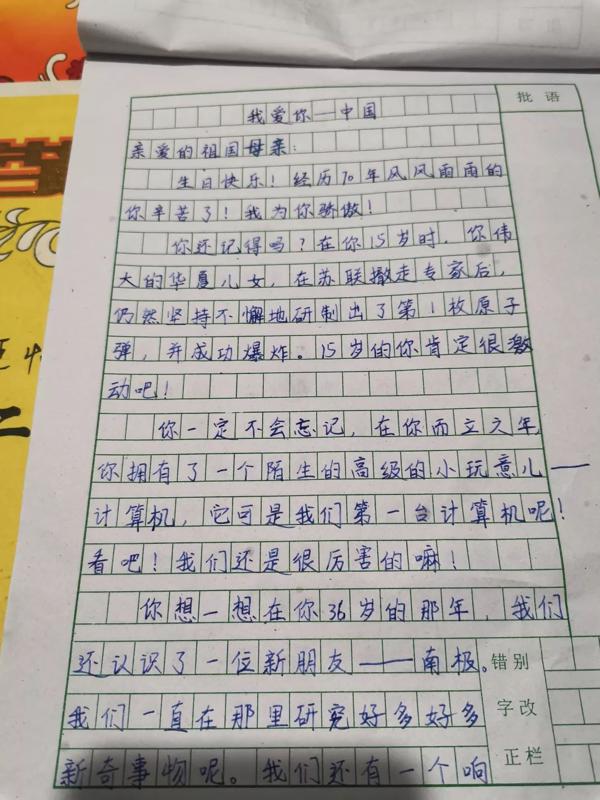 批语
我爱你—中国
亲爱的祖国母亲：
生日快乐！经历70年风风雨雨的
你辛苦了！我为你骄傲！
你还记得吗？在你15岁时，你伟
大的华夏儿女，在苏联撤走专家后，
仍然坚持不懈地研制出了第1枚原子
弹，并成功爆炸。15岁的你肯定很激
动吧！
你一定不会忘记，在你而立之年，
你拥有了一个陌生的高级的小玩意儿——
计算机，它可是我们第一台计算机呢！
看吧！我们还是很厉害的嘛！
你想一想在你36岁的那年，我们
还认识了一位新朋友——南极。
我们一直在那里研究好多好多
新奇事物呢。我们还有一个响
错别
字改
正栏